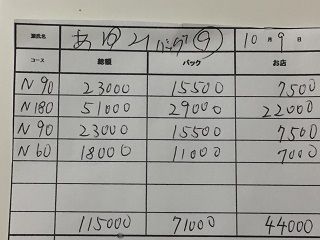 源氏名 あゆみ バック ⑨ 10月9日
コース 総額 バック お店
N90 23000 15500 7500
N180 51000 29000 22000
N90 23000 15500 7500
N60 18000 11000 7000
115000 71000 44000